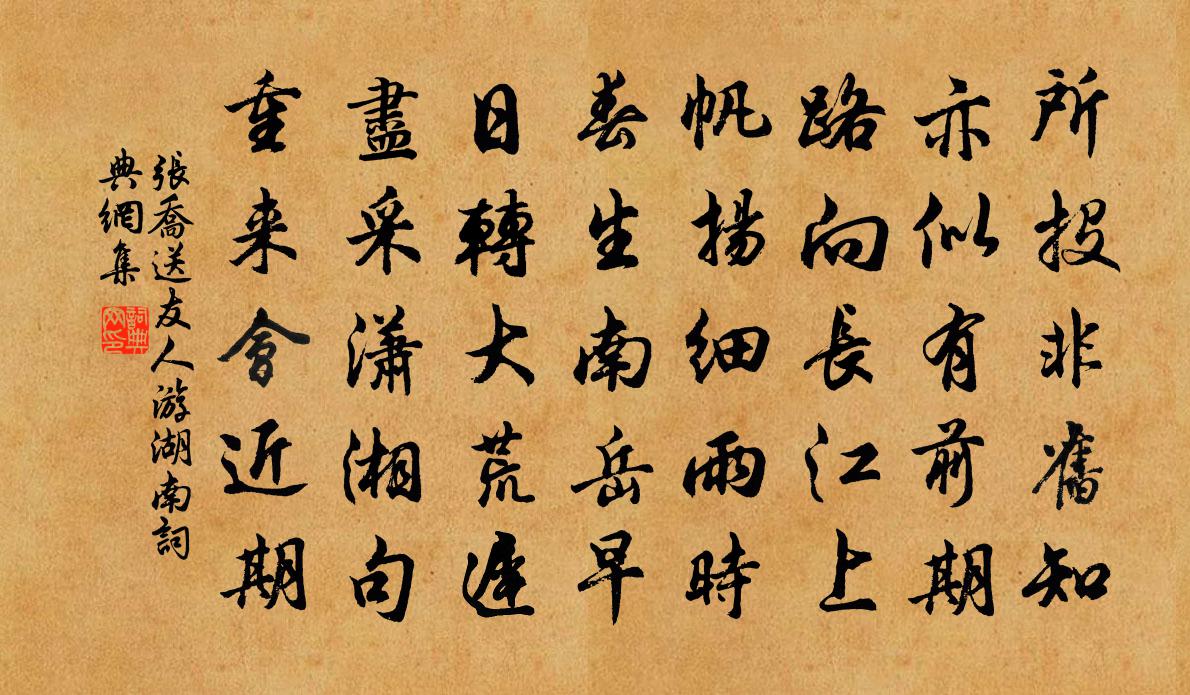 所投非舊知
亦似有前期
路向長江上
帆揚細雨時
春生南岳早
日轉大荒遲
盡采瀟湘句
重来會近期
張喬送友人游湖南詞
典網集
詞典
网印